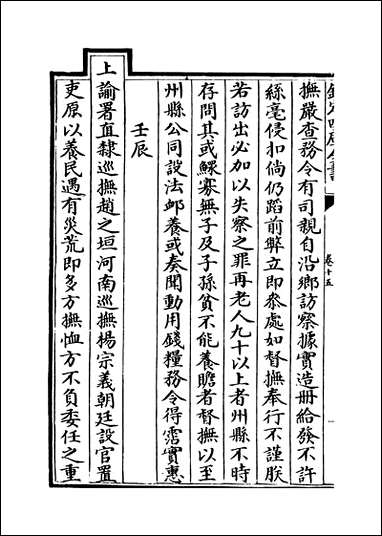 欽定四庫全書
卷十五
撫嚴查務令有司親自沿鄉訪察據實造冊給發不許
絲毫侵扣倘仍蹈前弊立即叅處如督撫奉行不謹朕
若訪出必加以失察之罪再老人九十以上者州縣不時
存問其或鰥寡無子及子孫貧不能養贍者督撫以至
州縣公同設法䘏養或奏聞動用錢糧務令得霑實惠
壬辰
上諭署直隸巡撫趙之垣河南巡撫楊宗義朝廷設官置
吏原以養民遇有災荒即多方撫恤方不負委任之重